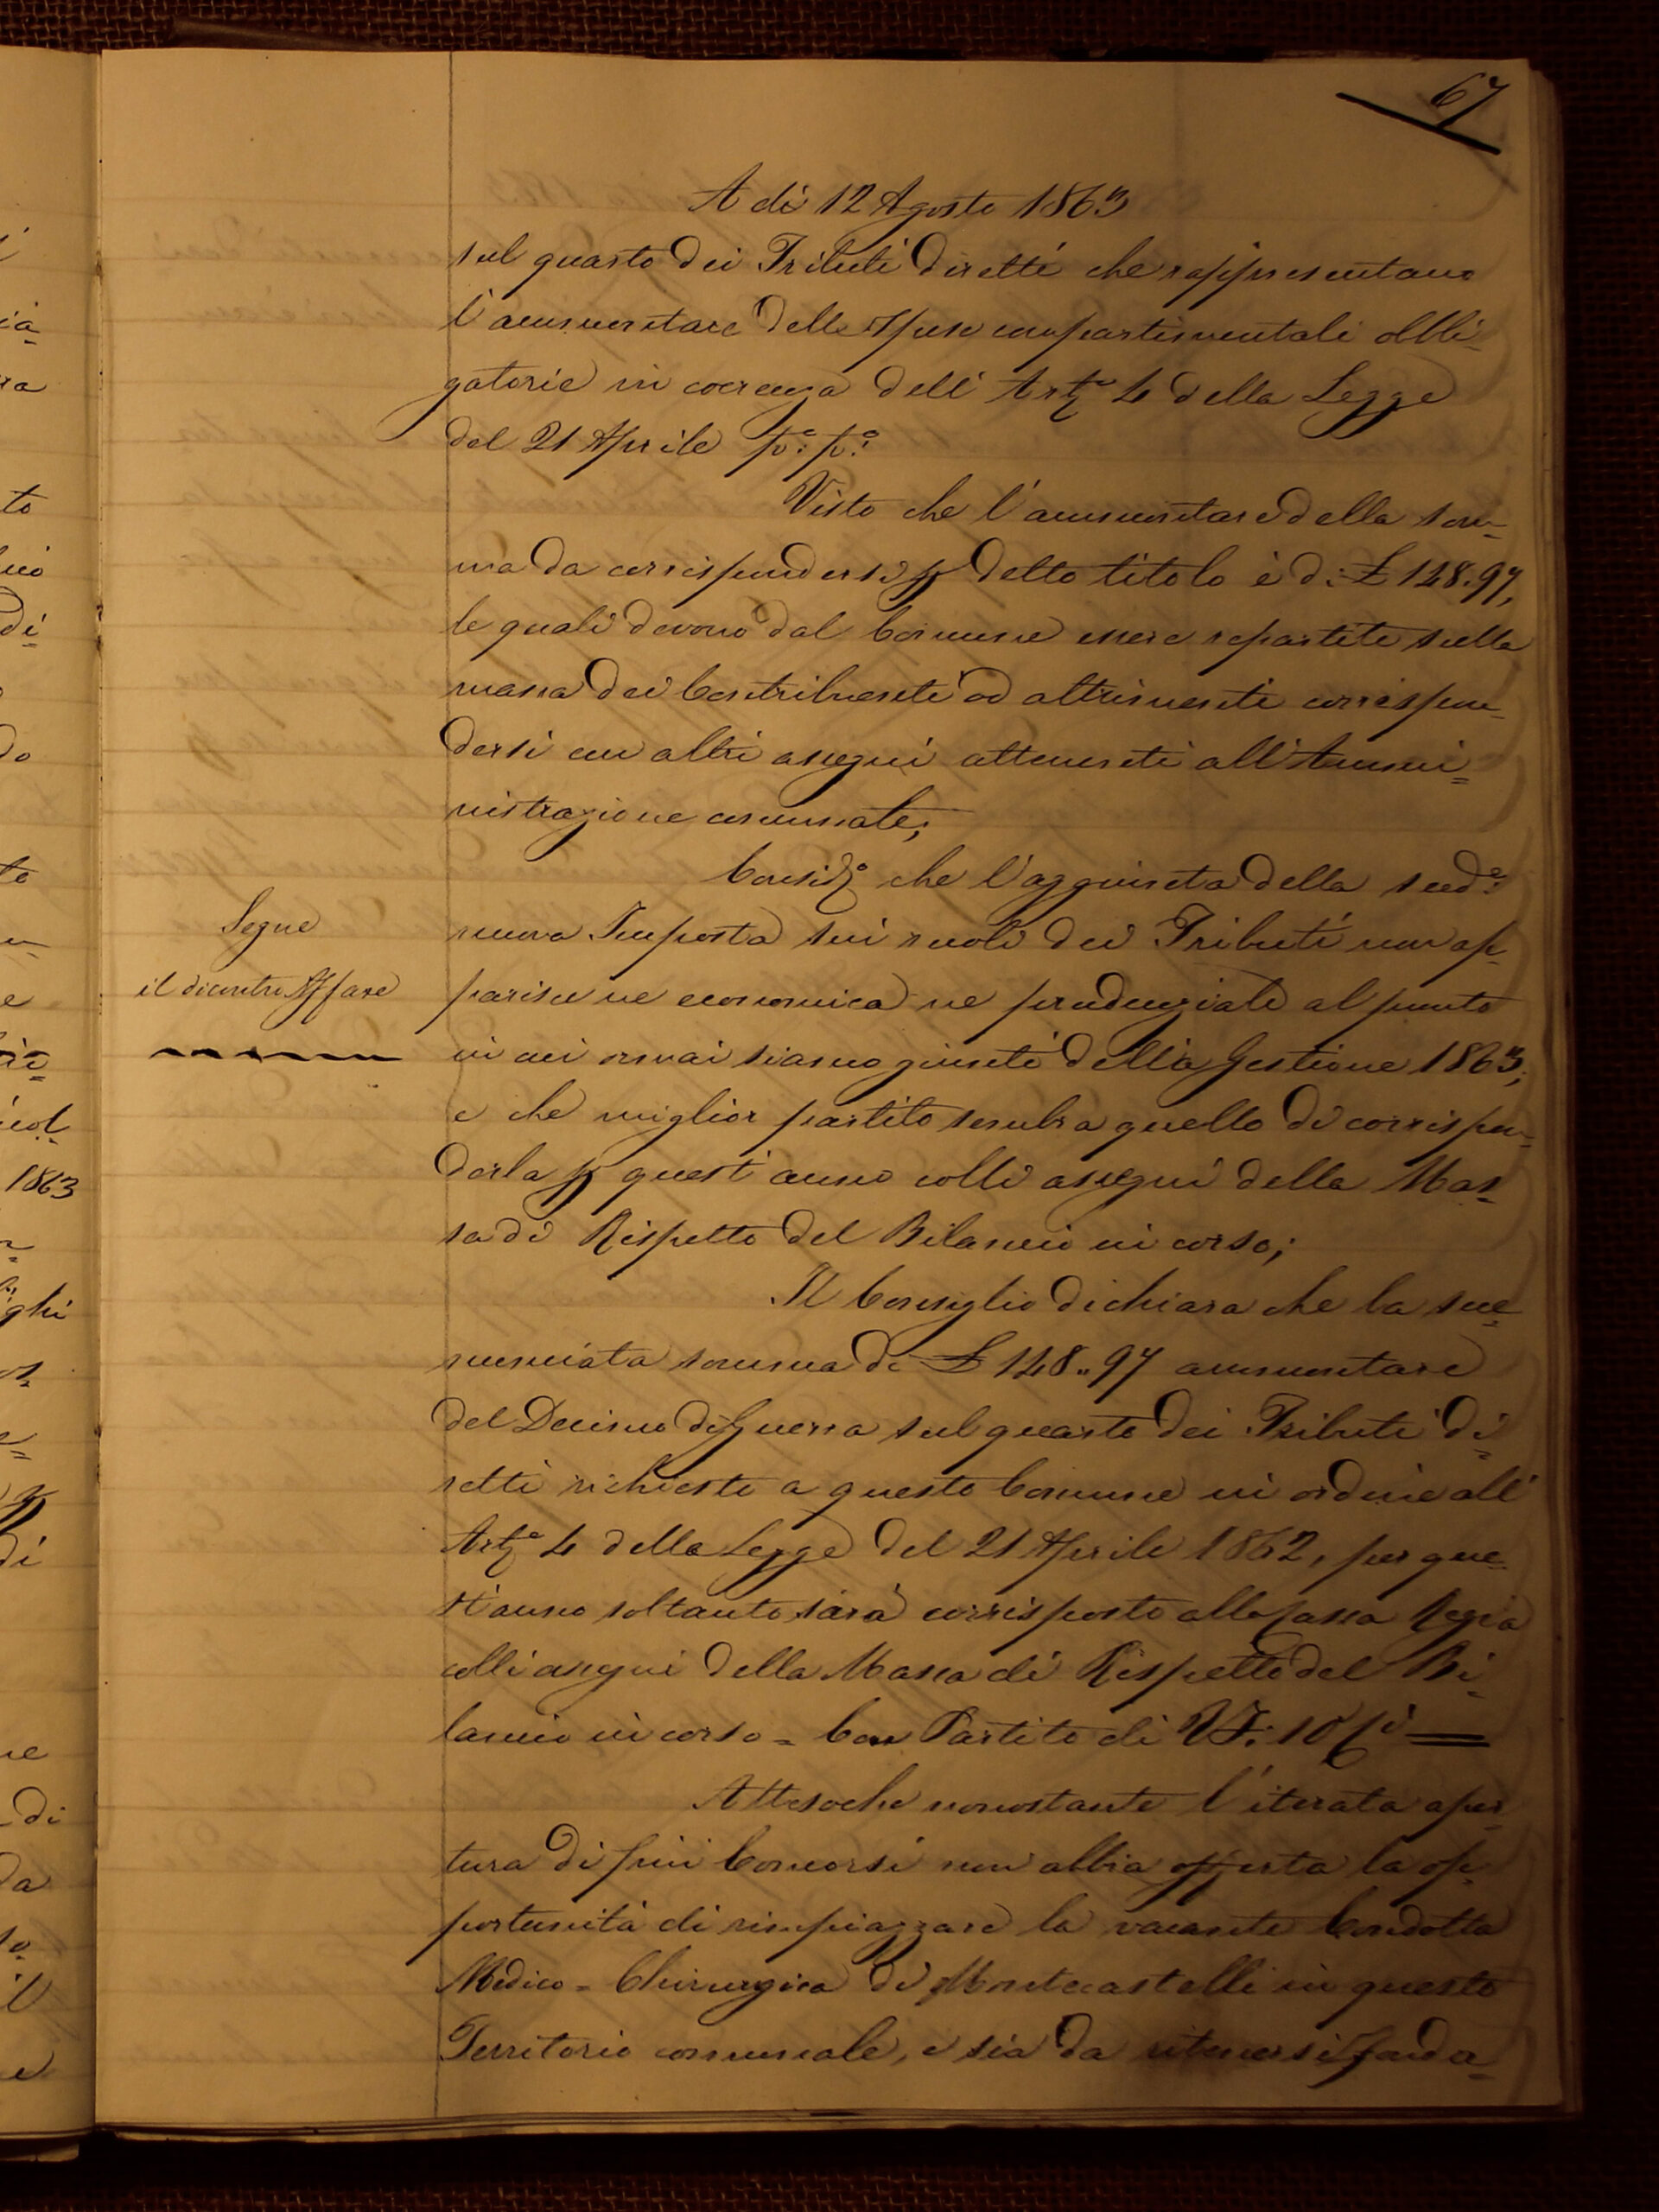 67
A dì 12 Agosto 1863
sul quarto dei Tributi diretti che rappresentano
l'ammontare delle spese compartimentali obbli=
gatorie in coerenza dell'Artº 4 della Legge
del 21 Aprile pº: pº:
Visto che l'ammontare della som=
ma da corrispondersi p detto titolo è di £ 148.97,
le quali devono dal Comune essere repartite sulla
massa dei Contribuenti od altrimenti corrispon=
dersi con altri assegni attenenti all'Ammi=
nistrazione comunale;
Considº che l'aggiunta della sudª:
nuova Imposta sui ruoli dei Tributi non ap=
parisce ne economica ne prudenziale al punto
in cui ormai siamo giunti della Gestione 1863;
e che miglior partito sembra quello di corrispon=
derla p quest'anno colli assegni della Mas=
sa di Rispetto del Bilancio in corso;
Segue
il dicontro Affare
Il Consiglio dichiara che la sue=
nunciata somma di £ 148..97 ammontare
del Decimo di Guerra sul quarto dei Tributi di=
retti richiesto a questo Comune in ordine all'
Artº 4 della Legge del 21 Aprile 1862, per que=
st'anno soltanto sarà corrisposto alla Cassa Regia
colli assegni della Massa di Rispetto del Bi=
lancio in corso = Con Partito di VF: 10 pi
Attesoche nonostante l'iterata aper=
tura di più Concorsi non abbia offerta la op=
portunità di rimpiazzare la vacante Condotta
Medico = Chirurgica di Montecastelli in questo
Territorio comunale, e sia da ritenersi